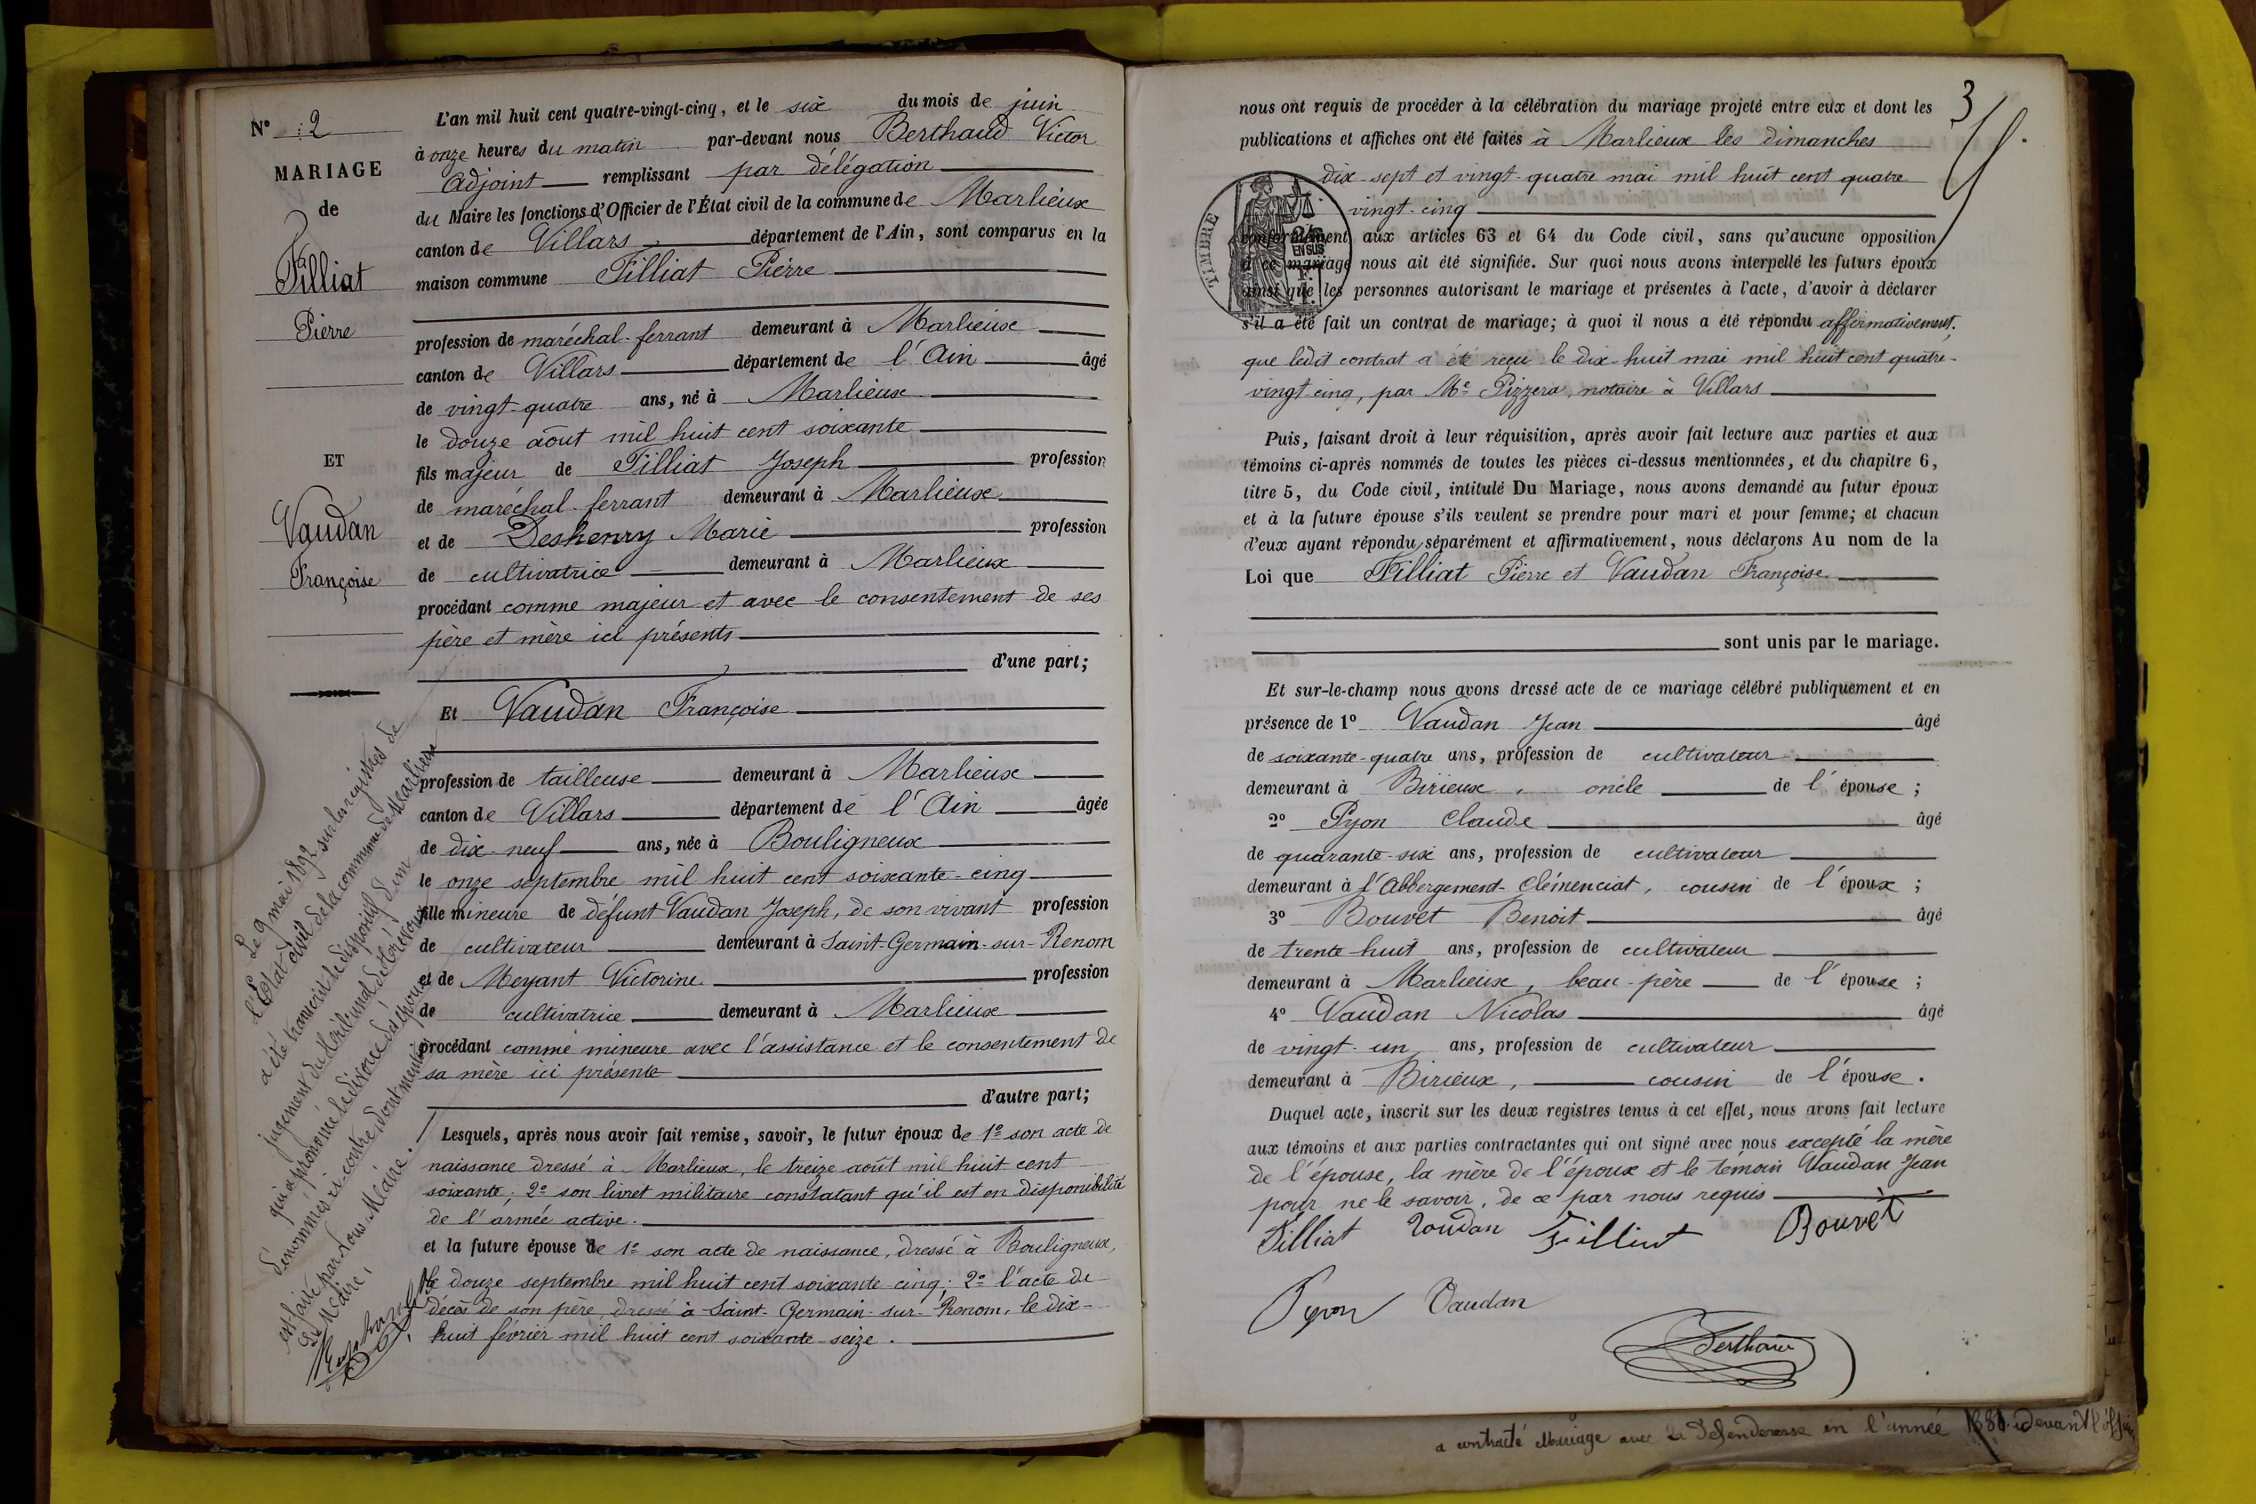 N° 2
MARIAGE
de
Filliat
Pierre
ET
Vaudan
Françoise
Le 9 mai 1892 sur les registres de
l'Etat civil de la commune de Marlieux
a été transcrit le dispositif d'un
jugement du tribunal de Trévoux
qui a prononcé le divorce des époux
dénommés ci-contre dont mention
est faite par nous Maire.
Le Maire,
L'an mil huit cent quatre-vingt-cinq, et le six du mois de juin
à onze heures du matin par-devant nous Berthaud Victor
Adjoint remplissant par délégation
du Maire les fonctions d'Officier de l'État civil de la commune de Marlieux
canton de Villars département de l'Ain, sont comparus en la
maison commune Filliat Pierre
profession de maréchal-ferrant demeurant à Marlieux
canton de Villars département de l'Ain âgé
de vingt-quatre ans, né à Marlieux
le douze août mil huit cent soixante
fils majeur de Filliat Joseph profession
de maréchal-ferrant demeurant à Marlieux
et de Deshenry Marie profession
de cultivatrice demeurant à Marlieux
procédant comme majeur et avec le consentement de ses
père et mère ici présents
d'une part;
Et Vaudan Françoise
profession de tailleuse demeurant à Marlieux
canton de Villars département de l'Ain âgée
de dix-neuf ans, née à Bouligneux
le onze septembre mil huit cent soixante-cinq
fille mineure de défunt Vaudan Joseph, de son vivant profession
de cultivateur demeurant à Saint-Germain-sur-Renom
et de Meyant Victorine profession
de cultivatrice demeurant à Marlieux
procédant comme mineure avec l'assistance et le consentement de
sa mère ici présente
d'autre part;
Lesquels, après nous avoir fait remise, savoir, le futur époux de 1° son acte de
naissance dressé à Marlieux, le treize août mil huit cent
soixante; 2° son livret militaire constatant qu'il est en disponibilité
de l'armée active.
et la future épouse de 1° son acte de naissance, dressé à Bouligneux,
le douze septembre mil huit cent soixante cinq; 2° l'acte de
décès de son père, dressé à Saint-Germain-sur-Renom, le dix-
huit février mil huit cent soixante-seize.
3
nous ont requis de procéder à la célébration du mariage projeté entre eux et dont les
publications et affiches ont été faites à Marlieux les dimanches
dix-sept et vingt-quatre mai mil huit cent quatre
vingt-cinq
TIMBRE
EN SUS
conformément aux articles 63 et 64 du Code civil, sans qu'aucune opposition
à ce mariage nous ait été signifiée. Sur quoi nous avons interpellé les futurs époux
ainsi que les personnes autorisant le mariage et présentes à l'acte, d'avoir à déclarer
s'il a été fait un contrat de mariage; à quoi il nous a été répondu affirmativement,
que ledit contrat a été reçu le dix-huit mai mil huit cent quatre-
vingt-cinq, par Me Pizzera, notaire à Villars
Puis, faisant droit à leur réquisition, après avoir fait lecture aux parties et aux
témoins ci-après nommés de toutes les pièces ci-dessus mentionnées, et du chapitre 6,
titre 5, du Code civil, intitulé Du Mariage, nous avons demandé au futur époux
et à la future épouse s'ils veulent se prendre pour mari et pour femme; et chacun
d'eux ayant répondu séparément et affirmativement, nous déclarons Au nom de la
Loi que Filliat Pierre et Vaudan Françoise
sont unis par le mariage.
Et sur-le-champ nous avons dressé acte de ce mariage célébré publiquement et en
présence de 1° Vaudan Jean âgé
de soixante-quatre ans, profession de cultivateur
demeurant à Birieux, oncle de l'épouse;
2° Pyon Claude âgé
de quarante-six ans, profession de cultivateur
demeurant à l'Abbergement-Clémenciat, cousin de l'époux;
3° Bouvet Benoit âgé
de trente huit ans, profession de cultivateur
demeurant à Marlieux, beau-père de l'épouse;
4° Vaudan Nicolas âgé
de vingt-un ans, profession de cultivateur
demeurant à Birieux, cousin de l'épouse.
Duquel acte, inscrit sur les deux registres tenus à cet effet, nous avons fait lecture
aux témoins et aux parties contractantes qui ont signé avec nous excepté la mère
de l'épouse, la mère de l'époux et le témoin Vaudan Jean
pour ne le savoir, de ce par nous requis
Filliat Voudan Filliat Bouvet
Pyon Vaudan
Berthaud
a contracté Mariage avec la Défenderesse en l'année devant